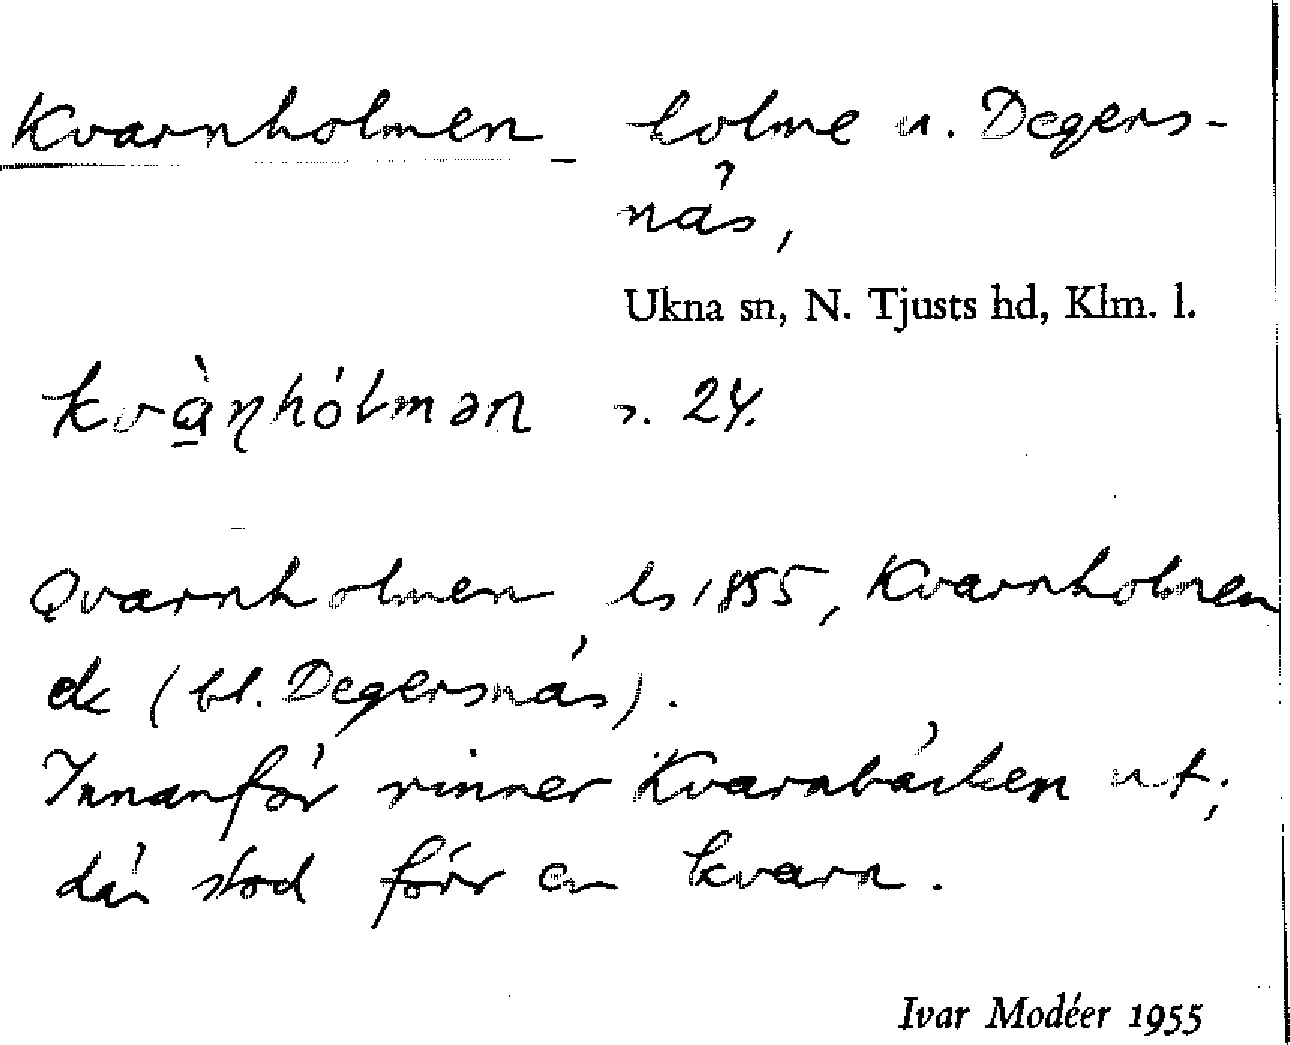 Kvarnholmen holme u. Degers-
näs,
Ukna sn, N. Tjusts hd, Klm. l.
kvą̀ɳhólmən s. 24.
Qvarnholmen ls 1855, Kvarnholmen
ek (bl. Degersnäs).
Innanför rinner Kvarnbäcken ut;
där stod förr en kvarn.
Ivar Modéer 1955